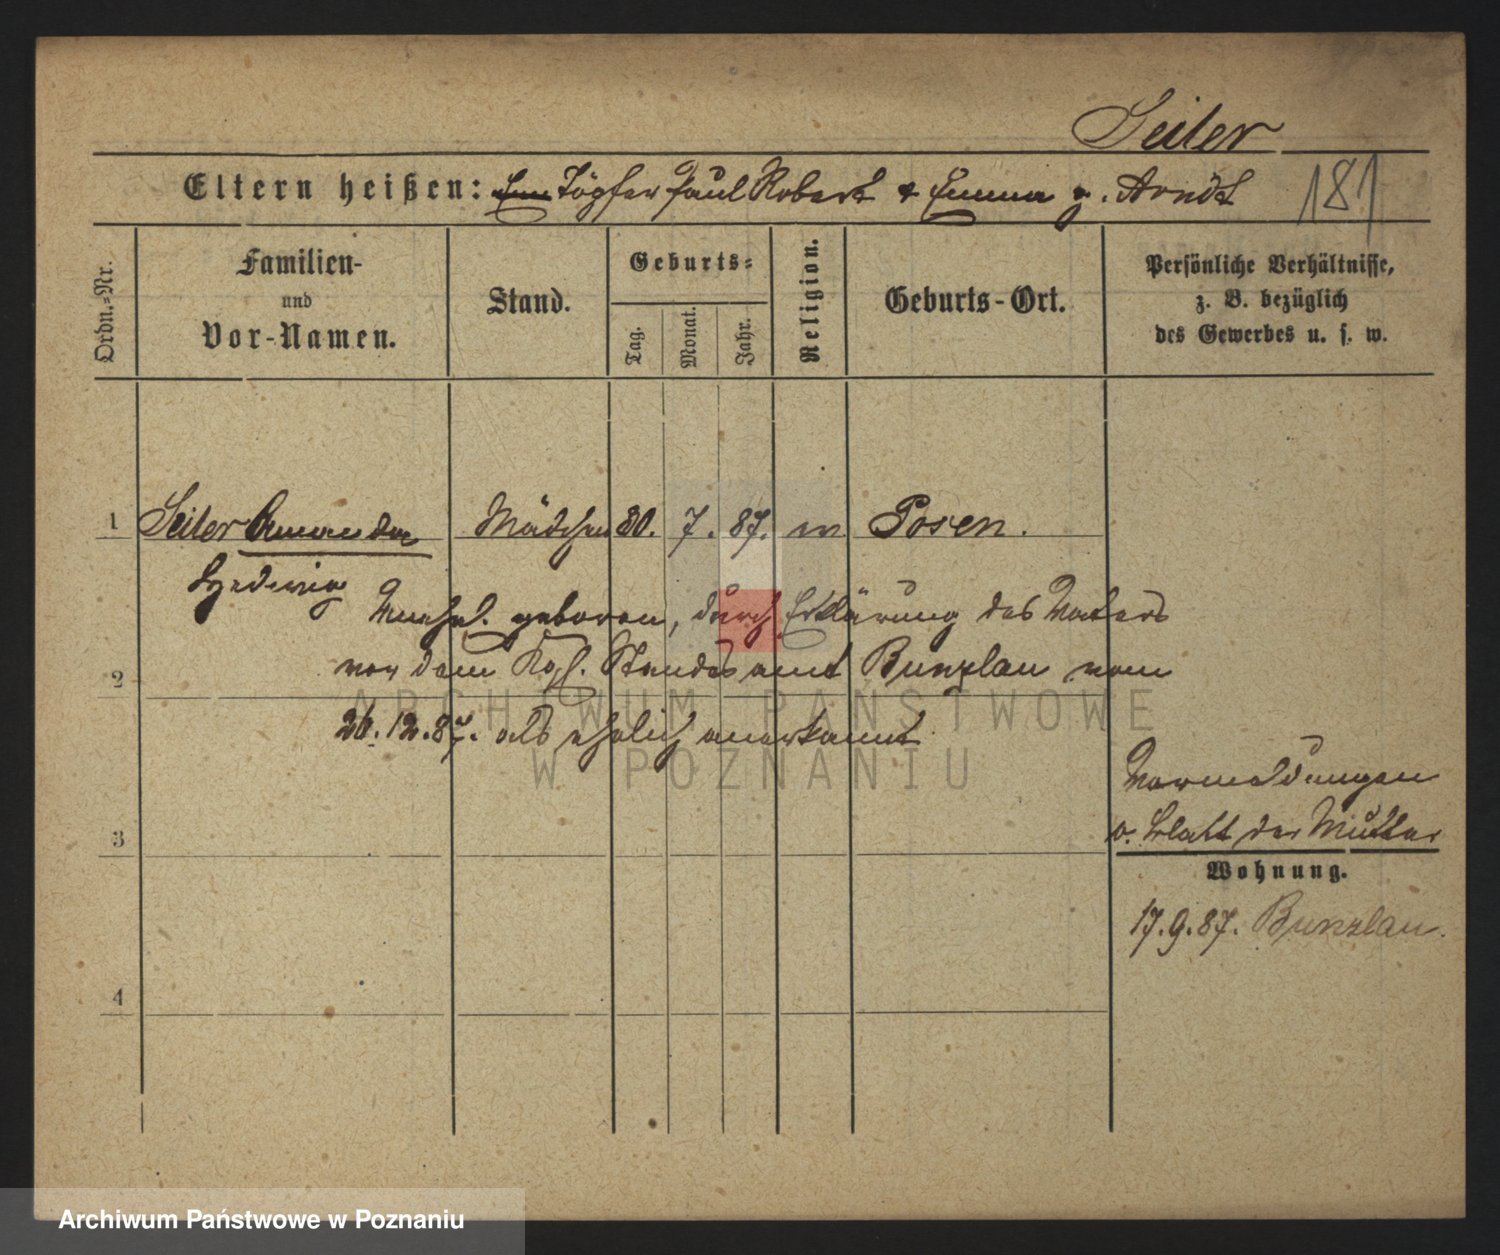 Seiler
Eltern heißen: Em Töpfer Paul Robert & Emma g. Arndt 181
Ordn.-Nr.
Familien-
und
Vor-Namen.
Stand.
Geburts-
Tag.
Monat.
Jahr.
Religion.
Geburts-Ort.
Persönliche Verhältnisse,
z. B. bezüglich
des Gewerbes u. s. w.
1 Seiler Amanda Mädchen 30. 7. 87. Posen.
Hedwig
Unehel. geboren, durch Erklärung des Vaters
vor dem Kgl. Standesamt Bunzlau vom
2
26.12.87. als ehelich anerkannt
ARCHIWUM PAŃSTWOWE
W POZNANIU
Vormeldungen
3
v. Blatt der Mutter
Wohnung.
17.9.87. Bunzlau.
4
Archiwum Państwowe w Poznaniu